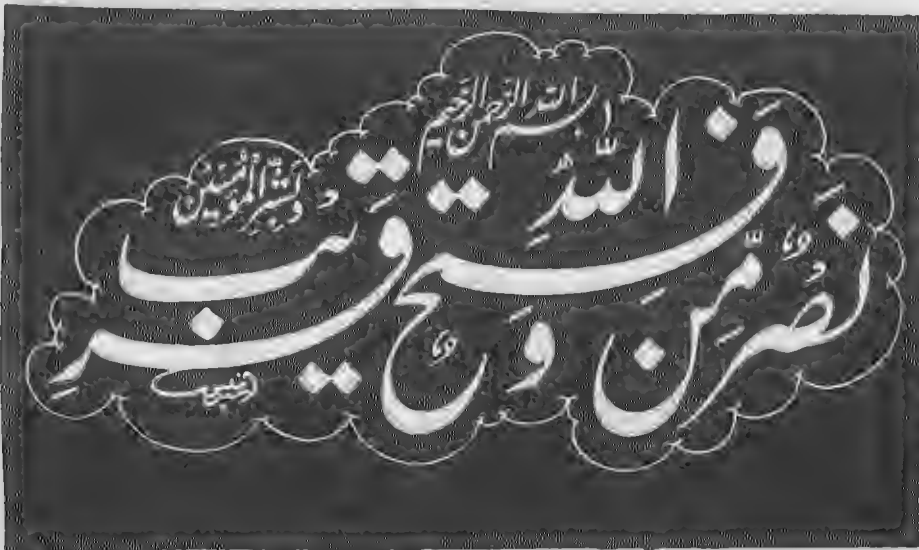 بسم الله الرحمن الرحيم
نَصْرٌ مِّنَ اللّٰهِ وَفَتْحٌ قَرِيبٌ
وبشر المؤمنين